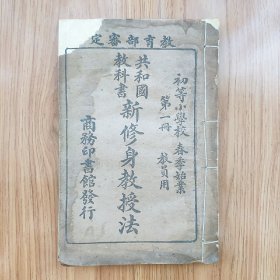 教育部審定
初等小學校 春季始業
第一冊 教員用
共和國
教科書
新修身教授法
商務印書館發行